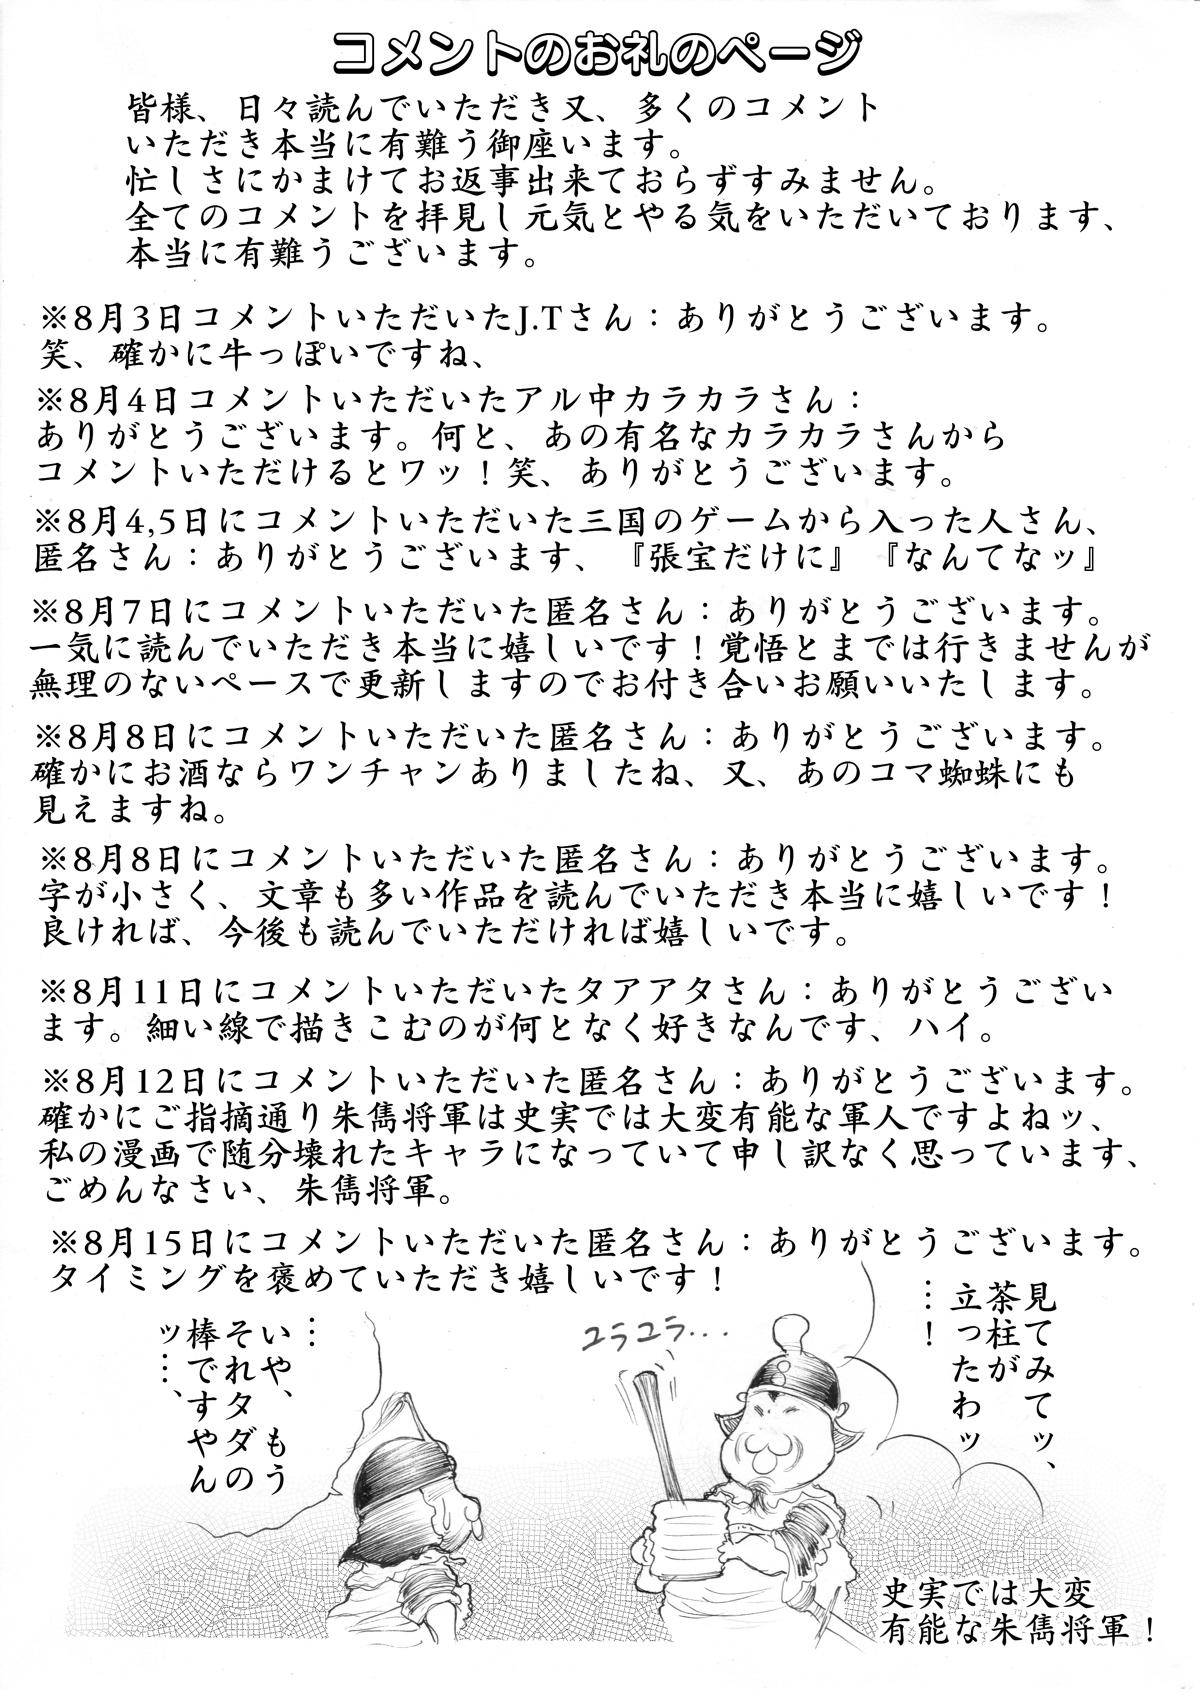 コメントのお礼のページ
皆様、日々読んでいただき又、多くのコメント
いただき本当に有難う御座います。
忙しさにかまけてお返事出来ておらずすみません。
全てのコメントを拝見し元気とやる気をいただいております、
本当に有難うございます。
※8月3日コメントいただいたJ.Tさん：ありがとうございます。
笑、確かに牛っぽいですね、
※8月4日コメントいただいたアル中カラカラさん：
ありがとうございます。何と、あの有名なカラカラさんから
コメントいただけるとワッ！笑、ありがとうございます。
※8月4,5日にコメントいただいた三国のゲームから入った人さん、
匿名さん：ありがとうございます、『張宝だけに』『なんてなッ』
※8月7日にコメントいただいた匿名さん：ありがとうございます。
一気に読んでいただき本当に嬉しいです！覚悟とまでは行きませんが
無理のないペースで更新しますのでお付き合いお願いいたします。
※8月8日にコメントいただいた匿名さん：ありがとうございます。
確かにお酒ならワンチャンありましたね、又、あのコマ蜘蛛にも
見えますね。
※8月8日にコメントいただいた匿名さん：ありがとうございます。
字が小さく、文章も多い作品を読んでいただき本当に嬉しいです！
良ければ、今後も読んでいただければ嬉しいです。
※8月11日にコメントいただいたタアアタさん：ありがとうござい
ます。細い線で描きこむのが何となく好きなんです、ハイ。
※8月12日にコメントいただいた匿名さん：ありがとうございます。
確かにご指摘通り朱雋将軍は史実では大変有能な軍人ですよねッ、
私の漫画で随分壊れたキャラになっていて申し訳なく思っています、
ごめんなさい、朱雋将軍。
※8月15日にコメントいただいた匿名さん：ありがとうございます。
タイミングを褒めていただき嬉しいです！
見てみてッ、
茶柱が
立ったわッ
…！
ユラユラ...
…
いや、もう
それタダの
棒ですやん
ッ…、
史実では大変
有能な朱雋将軍！